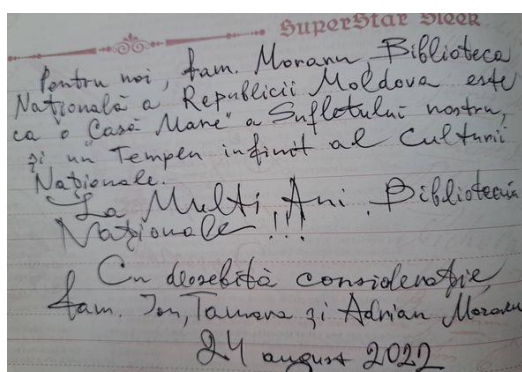 SuperStar Sleek
Pentru noi, fam. Moraru, Biblioteca
Națională a Republicii Moldova este
ca o "Casă Mare" a Sufletului nostru,
și un Templu infinit al Culturii
Naționale.
La Mulți Ani, Bibliotecii
Naționale!!!
Cu deosebită considerație,
fam. Ion, Tamara și Adrian Moraru
24 august 2022